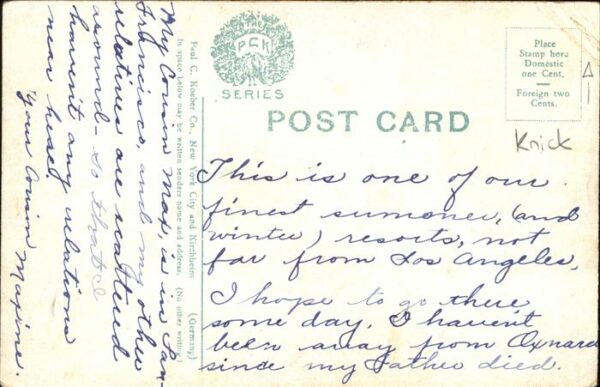 PCK
SERIES
POST CARD
Place
Stamp here
Domestic
one Cent.
Foreign two
Cents.
Knick
This is one of our
finest summer, (and
winter) resorts, not
far from Los Angeles.
I hope to go there
some day. I haven't
been away from Oxnard
since my Father died.
Paul C. Koeber Co., New York City and Kirchheim (Germany)
In space below may be written senders name and address. (No other writing)
My Cousin Max, is in San-
Francisco, and my other
relatives are scattered
around - so that I
haven't any relations
near here.
Your Cousin Maxine.